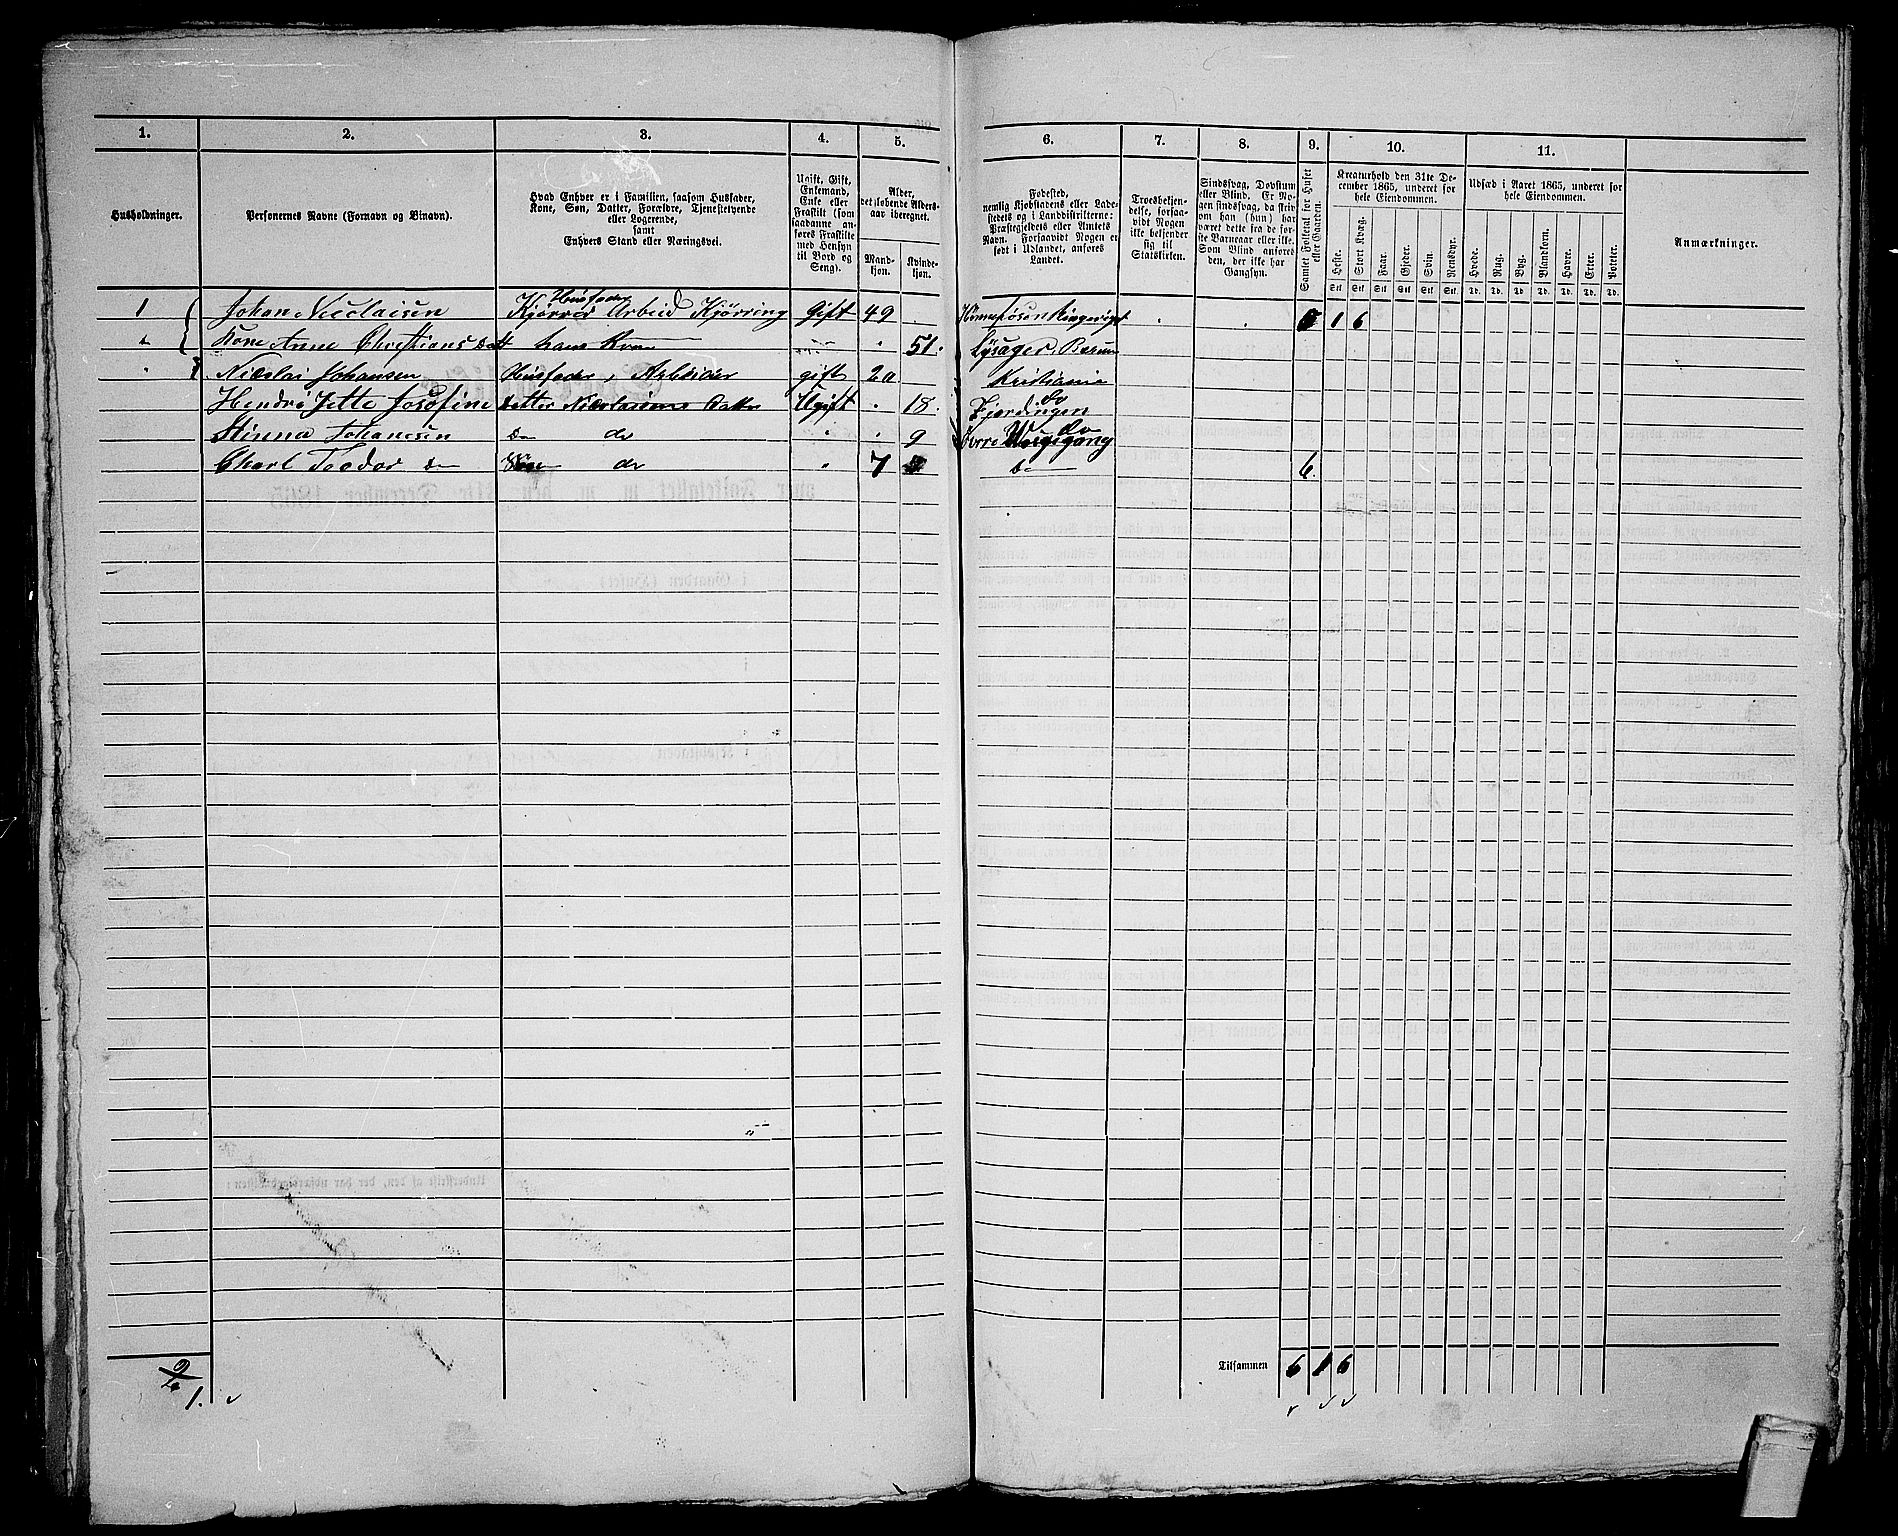 1. 2. 3. 4. 5. 6. 7. 8. 9. 10. 11.
Husholdninger.
Personernes Navne (Fornavn og Binavn).
Hvad Enhver er i Familien, saasom Husfader,
Kone, Søn, Datter, Forældre, Tjenestetyende
eller Logerende,
samt
Enhvers Stand eller Næringsvei.
Ugift, Gift,
Enkemand,
Enke eller
Fraskilt (som
saadanne an-
føres Fraskilte
med Hensyn
til Bord og
Seng).
Alder,
det løbende Alders-
aar iberegnet.
Mand-
kjøn.
Kvinde-
kjøn.
Fødested,
nemlig Kjøbstadens eller Lade-
stedets og i Landdistrikterne:
Præstegjeldets eller Amtets
Navn. Forsaavidt Nogen er
født i Udlandet, anføres
Landet.
Troesbekjen-
delse, forsaa-
vidt Nogen
ikke bekjender
sig til
Statskirken.
Sindssvag, Døvstum
eller Blind. Er No-
gen sindssvag, da skriv
om han (hun) har
været dette fra de før-
ste Barneaar eller ikke.
Som Blind anføres
den, der ikke har
Gangsyn.
Samlet Folketal for Huset
eller Gaarden.
Kreaturhold den 31te De-
cember 1865, underet for
hele Eiendommen.
Heste. Stort Kvæg. Faar. Gjeder. Svin. Rensdyr.
Stk. Stk. Stk. Stk. Stk. Stk.
Udsæd i Aaret 1865, underet for
hele Eiendommen.
Hvede. Rug. Byg. Blandkorn. Havre. Erter. Poteter.
Td. Td. Td. Td. Td. Td. Td.
Anmærkninger.
Husfader
1 Johan Nicolaisen Kjørrer Arbeid Kjørring Gift 49 1 6
Kone Anne Christiansdatt hans Kone 51 Lysager Bærum
Nicolai Johansen Husfader, Arbeider gift 20 Kristiania
Hendrijette Josofine Ugift 18 Fjerdingen
do
Johanesen do do 9
Charl Teodor do Søn do 7 do 6.
Tilsammen 6 1 6
2
1.